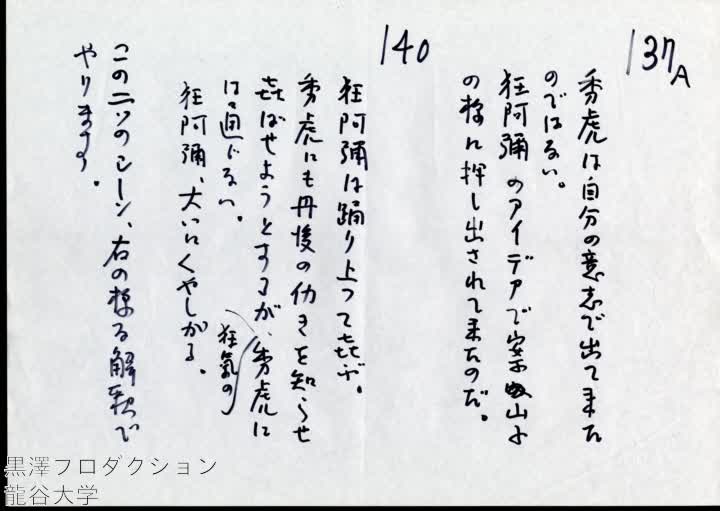 137A
秀虎は自分の意志で出て来た
のではない。
狂阿彌のアイデアで案山子
の様に押し出されて来たのだ。
140
狂阿彌は踊り上って㐂ぶ。
秀虎にも丹後の働きを知らせ
㐂ばせようとするが、狂氣の秀虎に
は通じない。
狂阿彌、大いにくやしがる。
この二ツのシーン、右の様な解釈で
やります。
黒澤プロダクション
龍谷大学